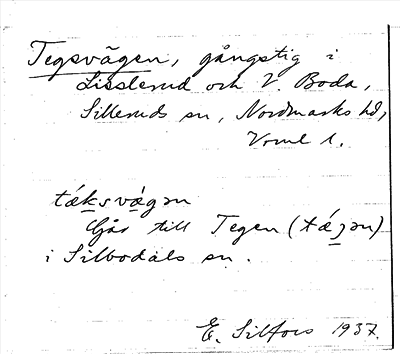 Tegsvägen, gångstig i
Lisslerud och V. Boda,
Silleruds sn, Nordmarks hd,
Vrml l.
tǽksvǽgən
Går till Tegen (tǽjən)
i Silbodals sn.
E. Silfors 1937.